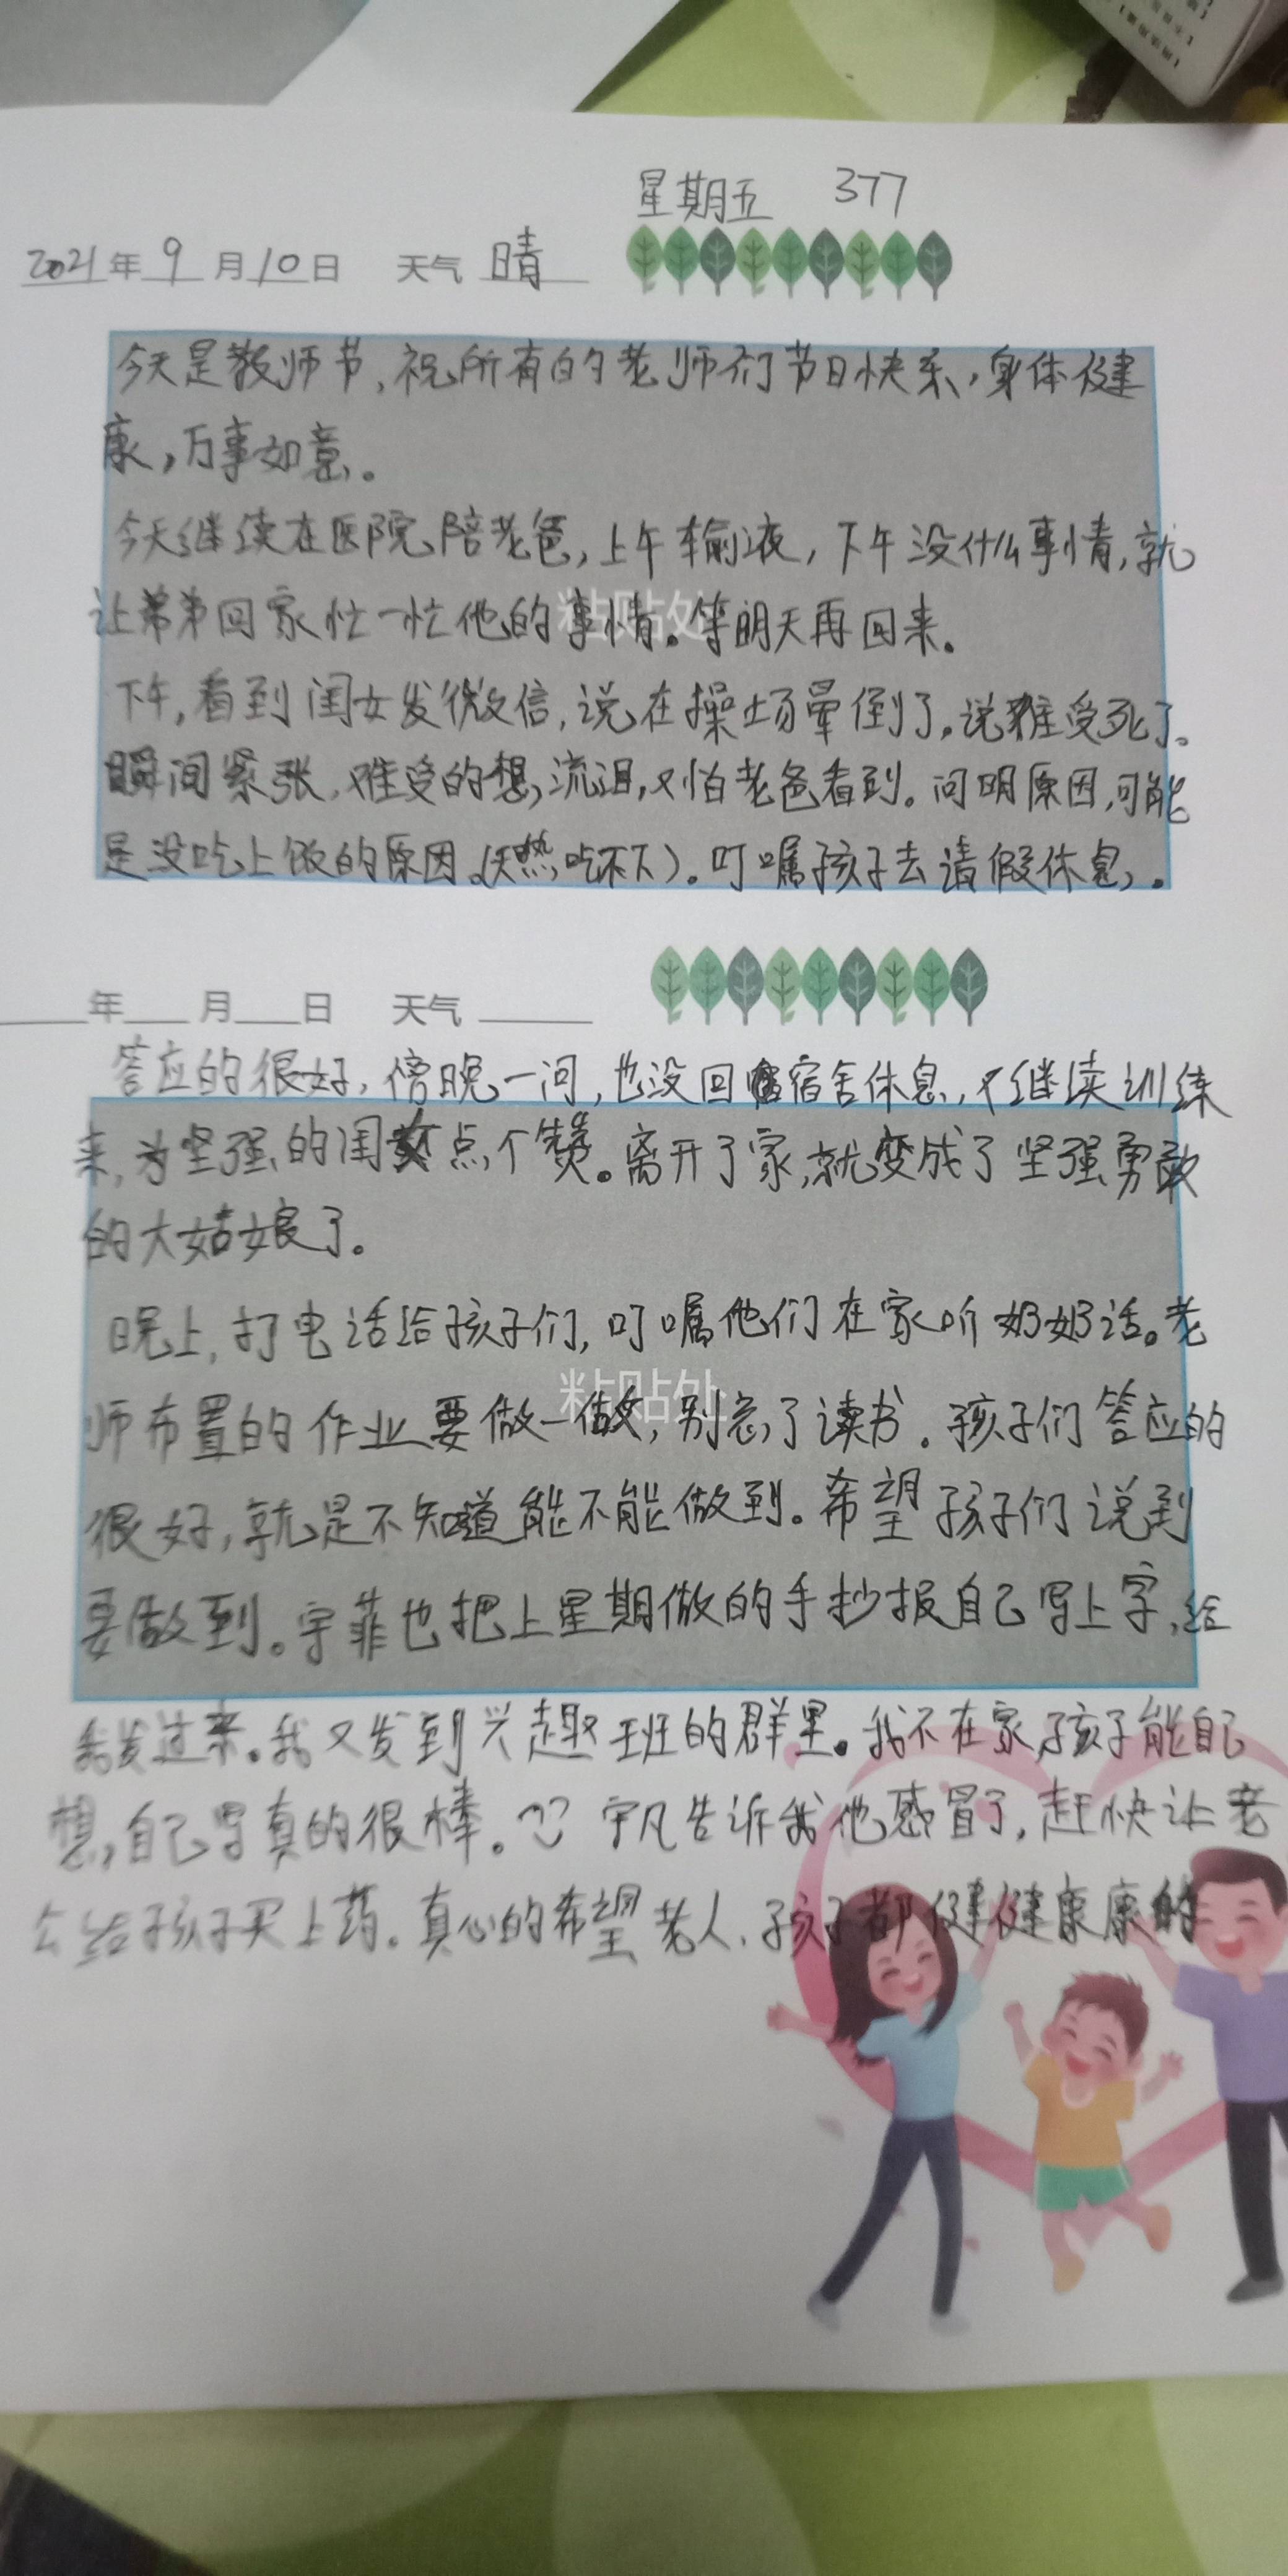 星期五 377
2021年9月10日 天气 晴
今天是教师节,祝所有的老师们节日快乐,身体健
康,万事如意。
今天继续在医院陪老爸,上午输液,下午没什么事情,就
让弟弟回家忙一忙他的事情。等明天再回来。
粘贴处
下午,看到闺女发微信,说在操场晕倒了。说难受死了。
瞬间紧张,难受的想流泪,又怕老爸看到。问明原因,可能
是没吃上饭的原因。(天热,吃不下)。叮嘱孩子去请假休息。
年 月 日 天气
答应的很好,傍晚一问,也没回宿舍休息,又继续训练
来,为坚强的闺女点个赞。离开了家,就变成了坚强勇敢
的大姑娘了。
晚上,打电话给孩子们,叮嘱他们在家听奶奶话。老
粘贴处
师布置的作业要做一做,别忘了读书。孩子们答应的
很好,就是不知道能不能做到。希望孩子们说到
要做到。宇菲也把上星期做的手抄报自己写上字,给
我发过来。我又发到兴趣班的群里。我不在家,孩子能自己
想,自己写真的很棒。宇凡告诉我他感冒了,赶快让老
公给孩子买上药。真心的希望老人、孩子都健健康康的